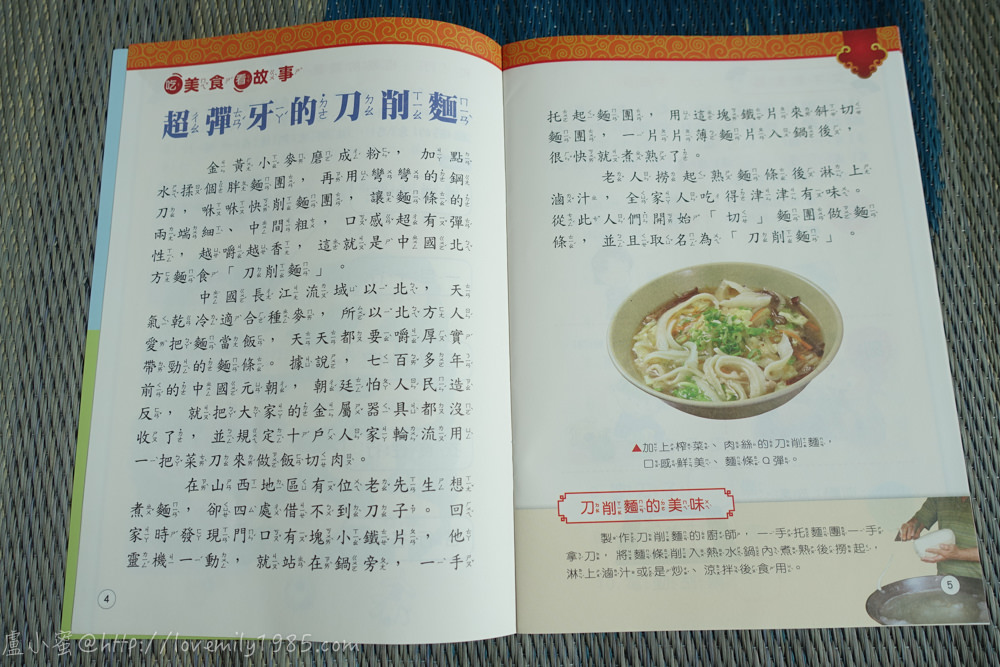 吃美食看故事
超彈牙的刀削麵
金黃小麥磨成粉，加點
水揉個胖麵團，再用彎彎的鋼
刀，咻咻快削麵團，讓麵條的
兩端細、中間粗，口感超有彈
性，越嚼越香，這就是中國北
方麵食「刀削麵」。
中國長江流域以北，天
氣乾冷適合種麥，所以北方人
愛把麵當飯，天天都要嚼厚實
帶勁的麵條。據說，七百多年
前的中國元朝，朝廷怕人民造
反，就把大家的金屬器具都沒
收了，並規定十戶人家輪流用
一把菜刀來做飯切肉。
在山西地區有位老先生想
煮麵，卻四處借不到刀子。回
家時發現門口有塊小鐵片，他
靈機一動，就站在鍋旁，一手
4
托起麵團，用這塊鐵片來斜切
麵團，一片片薄麵片入鍋後，
很快就煮熟了。
老人撈起熟麵條後淋上
滷汁，全家人吃得津津有味。
從此人們開始「切」麵團做麵
條，並且取名為「刀削麵」。
▲加上榨菜、肉絲的刀削麵，
口感鮮美、麵條Q彈。
刀削麵的美味
製作刀削麵的廚師，一手托麵團一手
拿刀，將麵條削入熱水鍋內煮熟後撈起，
淋上滷汁或是炒、涼拌後食用。
5
盧小蜜@http://lovemily1985.com